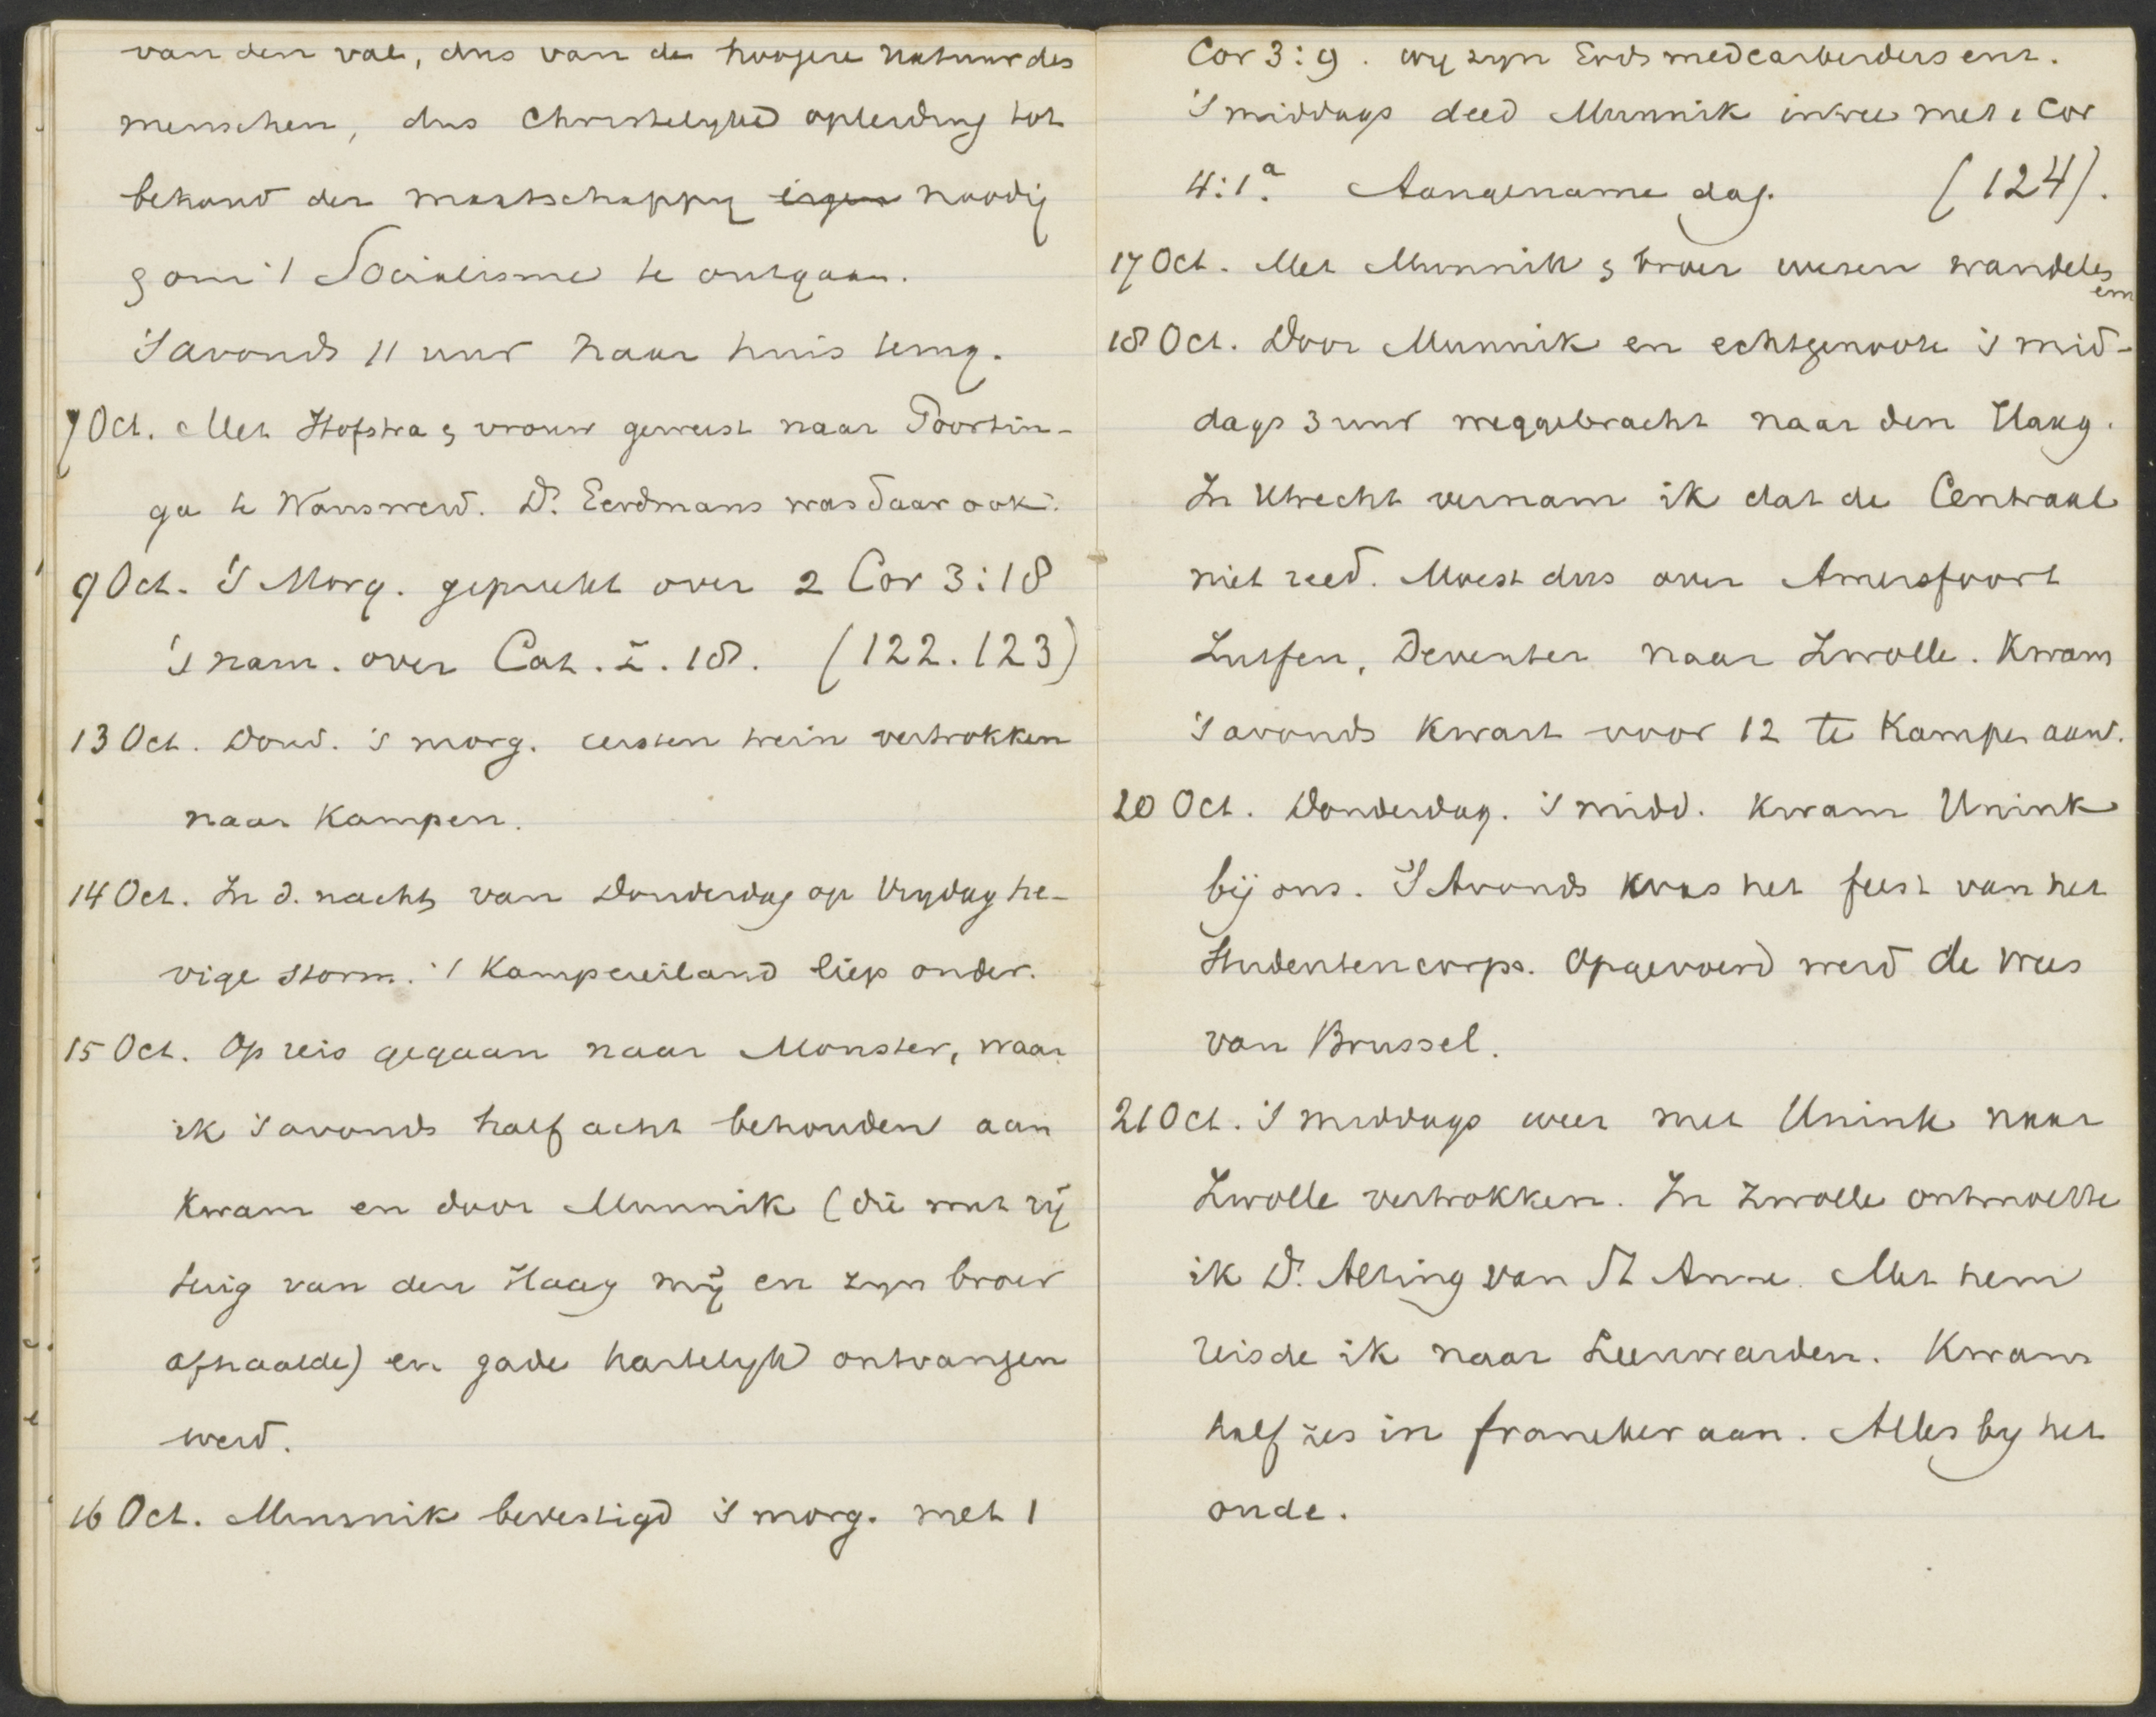 van den val, dus van de hoogere natuur des
menschen, dus Christelyke opleiding tot
behoud der maatschappy eigen noodig
& om 't Socialisme te ontgaan.
's avonds 11 uur naar huis terug.
7 Oct. Met Hofstra & vrouw geweest naar Poortin-
ga te Wanswerd. Ds. Eerdmans was daar ook.
9 Oct. 's Morg. gepreekt over 2 Cor 3:18
's nam. over Cat. Z. 18. (122.123)
13 Oct. Dond. 's morg. eersten trein vertrokken
naar Kampen.
14 Oct. In d. nacht van Donderdag op Vrydag he-
vige storm. 't Kampereiland liep onder.
15 Oct. Op reis gegaan naar Monster, waar
ik 's avonds half acht behouden aan
kwam en door Munnik (die met rij
tuig van den Haag mij en zyn broer
afhaalde) en gade hartelyk ontvangen
werd.
16 Oct. Munnik bevestigd 's morg. met 1
Cor 3:9. wy zyn Gods medearbeiders enz.
's middags deed Munnik intree met 1 Cor
4:1a. Aangename dag. (124).
17 Oct. Met Munnik & broer wezen wandelen
18 Oct. Door Munnik en echtgenoote 's mid-
dags 3 uur weggebracht naar den Haag.
In Utrecht vernam ik dat de Centraal
niet reed. Moest dus over Amersfoort
Zutfen, Deventer naar Zwolle. Kwam
's avonds kwart voor 12 te Kampen aan.
20 Oct. Donderdag. 's midd. kwam Unink
bij ons. 's Avonds was het feest van het
Studentencorps. Opgevoerd werd de Wees
van Brussel.
21 Oct. 's middags weer met Unink naar
Zwolle vertrokken. In Zwolle ontmoette
ik Ds. Alting van St Anne. Met hem
reisde ik naar Leeuwarden. Kwam
half zes in franeker aan. Alles by het
oude.